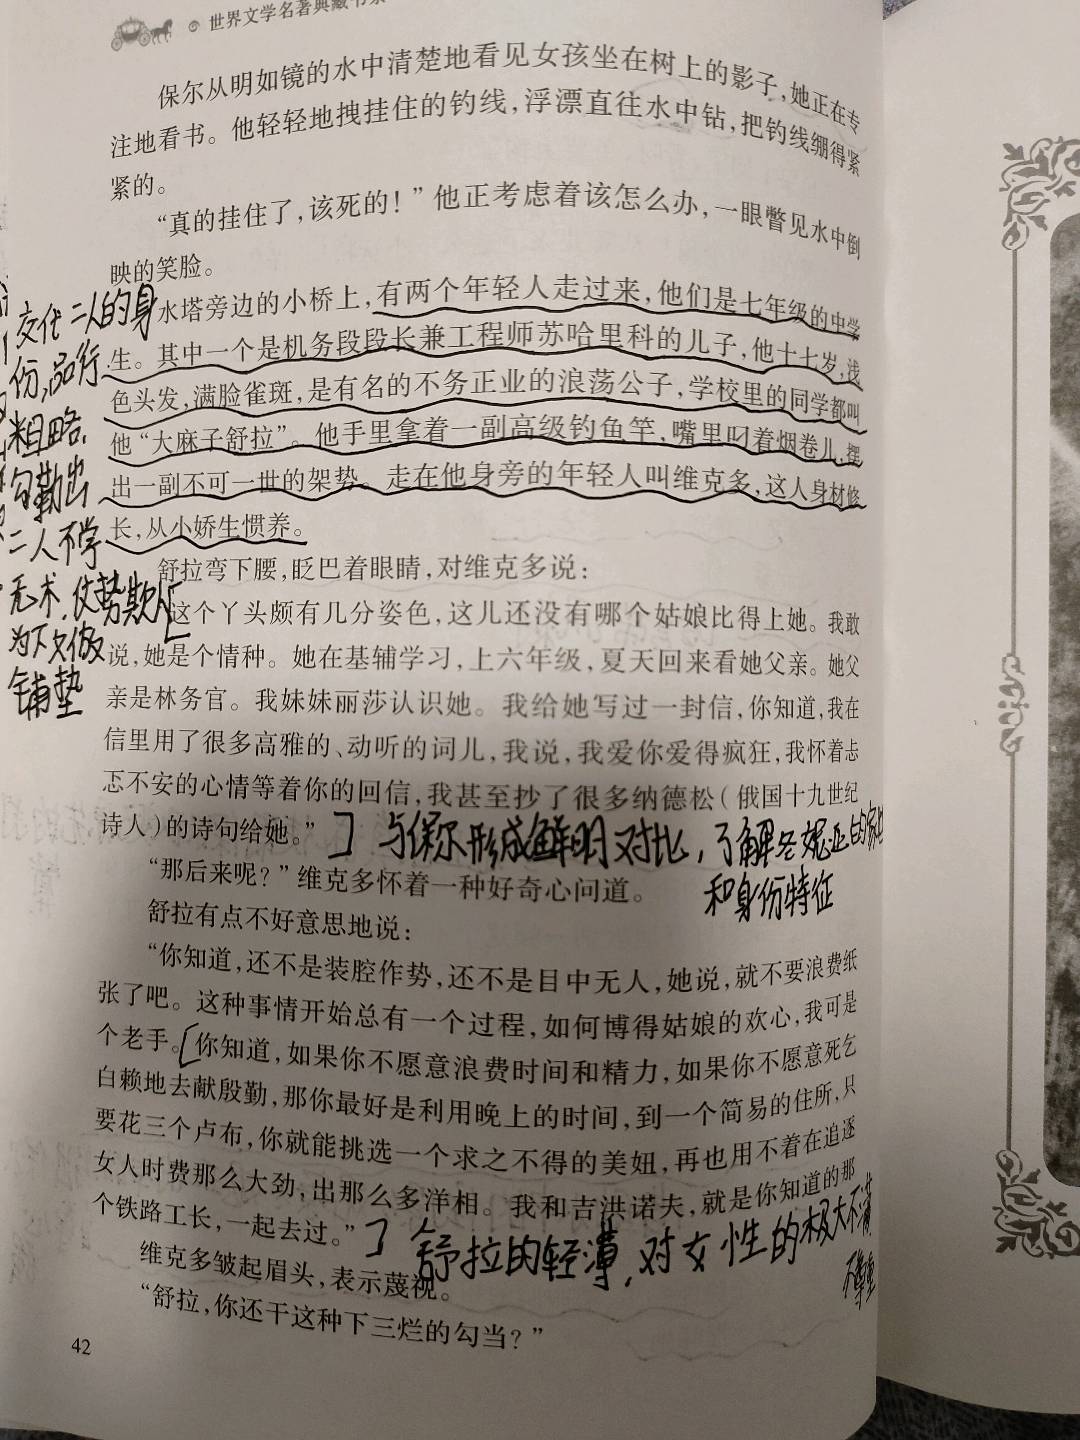 世界文学名著典藏书系
保尔从明如镜的水中清楚地看见女孩坐在树上的影子，她正在专
注地看书。他轻轻地拽挂住的钓线，浮漂直往水中钻，把钓线绷得紧
紧的。
“真的挂住了，该死的！”他正考虑着该怎么办，一眼瞥见水中倒
映的笑脸。
水塔旁边的小桥上，有两个年轻人走过来，他们是七年级的中学
生。其中一个是机务段段长兼工程师苏哈里科的儿子，他十七岁，浅
色头发，满脸雀斑，是有名的不务正业的浪荡公子，学校里的同学都叫
他“大麻子舒拉”。他手里拿着一副高级钓鱼竿，嘴里叼着烟卷儿，摆
出一副不可一世的架势。走在他身旁的年轻人叫维克多，这人身材修
长，从小娇生惯养。
交代二人的身
份,品行
粗略,
勾勒出
二人不学
无术,仗势欺人
为下文做
铺垫
舒拉弯下腰，眨巴着眼睛，对维克多说：
“这个丫头颇有几分姿色，这儿还没有哪个姑娘比得上她。我敢
说，她是个情种。她在基辅学习，上六年级，夏天回来看她父亲。她父
亲是林务官。我妹妹丽莎认识她。我给她写过一封信，你知道，我在
信里用了很多高雅的、动听的词儿，我说，我爱你爱得疯狂，我怀着忐
忑不安的心情等着你的回信，我甚至抄了很多纳德松（俄国十九世纪
诗人）的诗句给她。”
与保尔形成鲜明对比，了解冬妮亚的家世
和身份特征
“那后来呢？”维克多怀着一种好奇心问道。
舒拉有点不好意思地说：
“你知道，还不是装腔作势，还不是目中无人，她说，就不要浪费纸
张了吧。这种事情开始总有一个过程，如何博得姑娘的欢心，我可是
个老手。你知道，如果你不愿意浪费时间和精力，如果你不愿意死乞
白赖地去献殷勤，那你最好是利用晚上的时间，到一个简易的住所，只
要花三个卢布，你就能挑选一个求之不得的美妞，再也用不着在追逐
女人时费那么大劲，出那么多洋相。我和吉洪诺夫，就是你知道的那
个铁路工长，一起去过。”
舒拉的轻薄，对女性的极大不满
不尊重
维克多皱起眉头，表示蔑视。
“舒拉，你还干这种下三烂的勾当？”
42